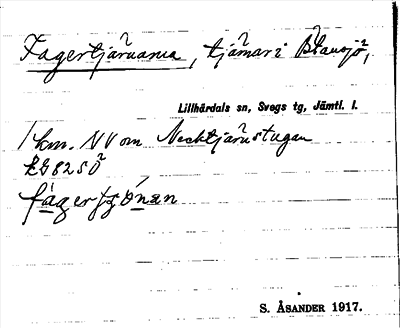 Fagertjärnarna, tjärnar i Blåsjö,
Lillhärdals sn, Svegs tg, Jämtl. l.
1 km. NV om Necktjärnstugan
fägerţşǿnan
S. ÅSANDER 1917.